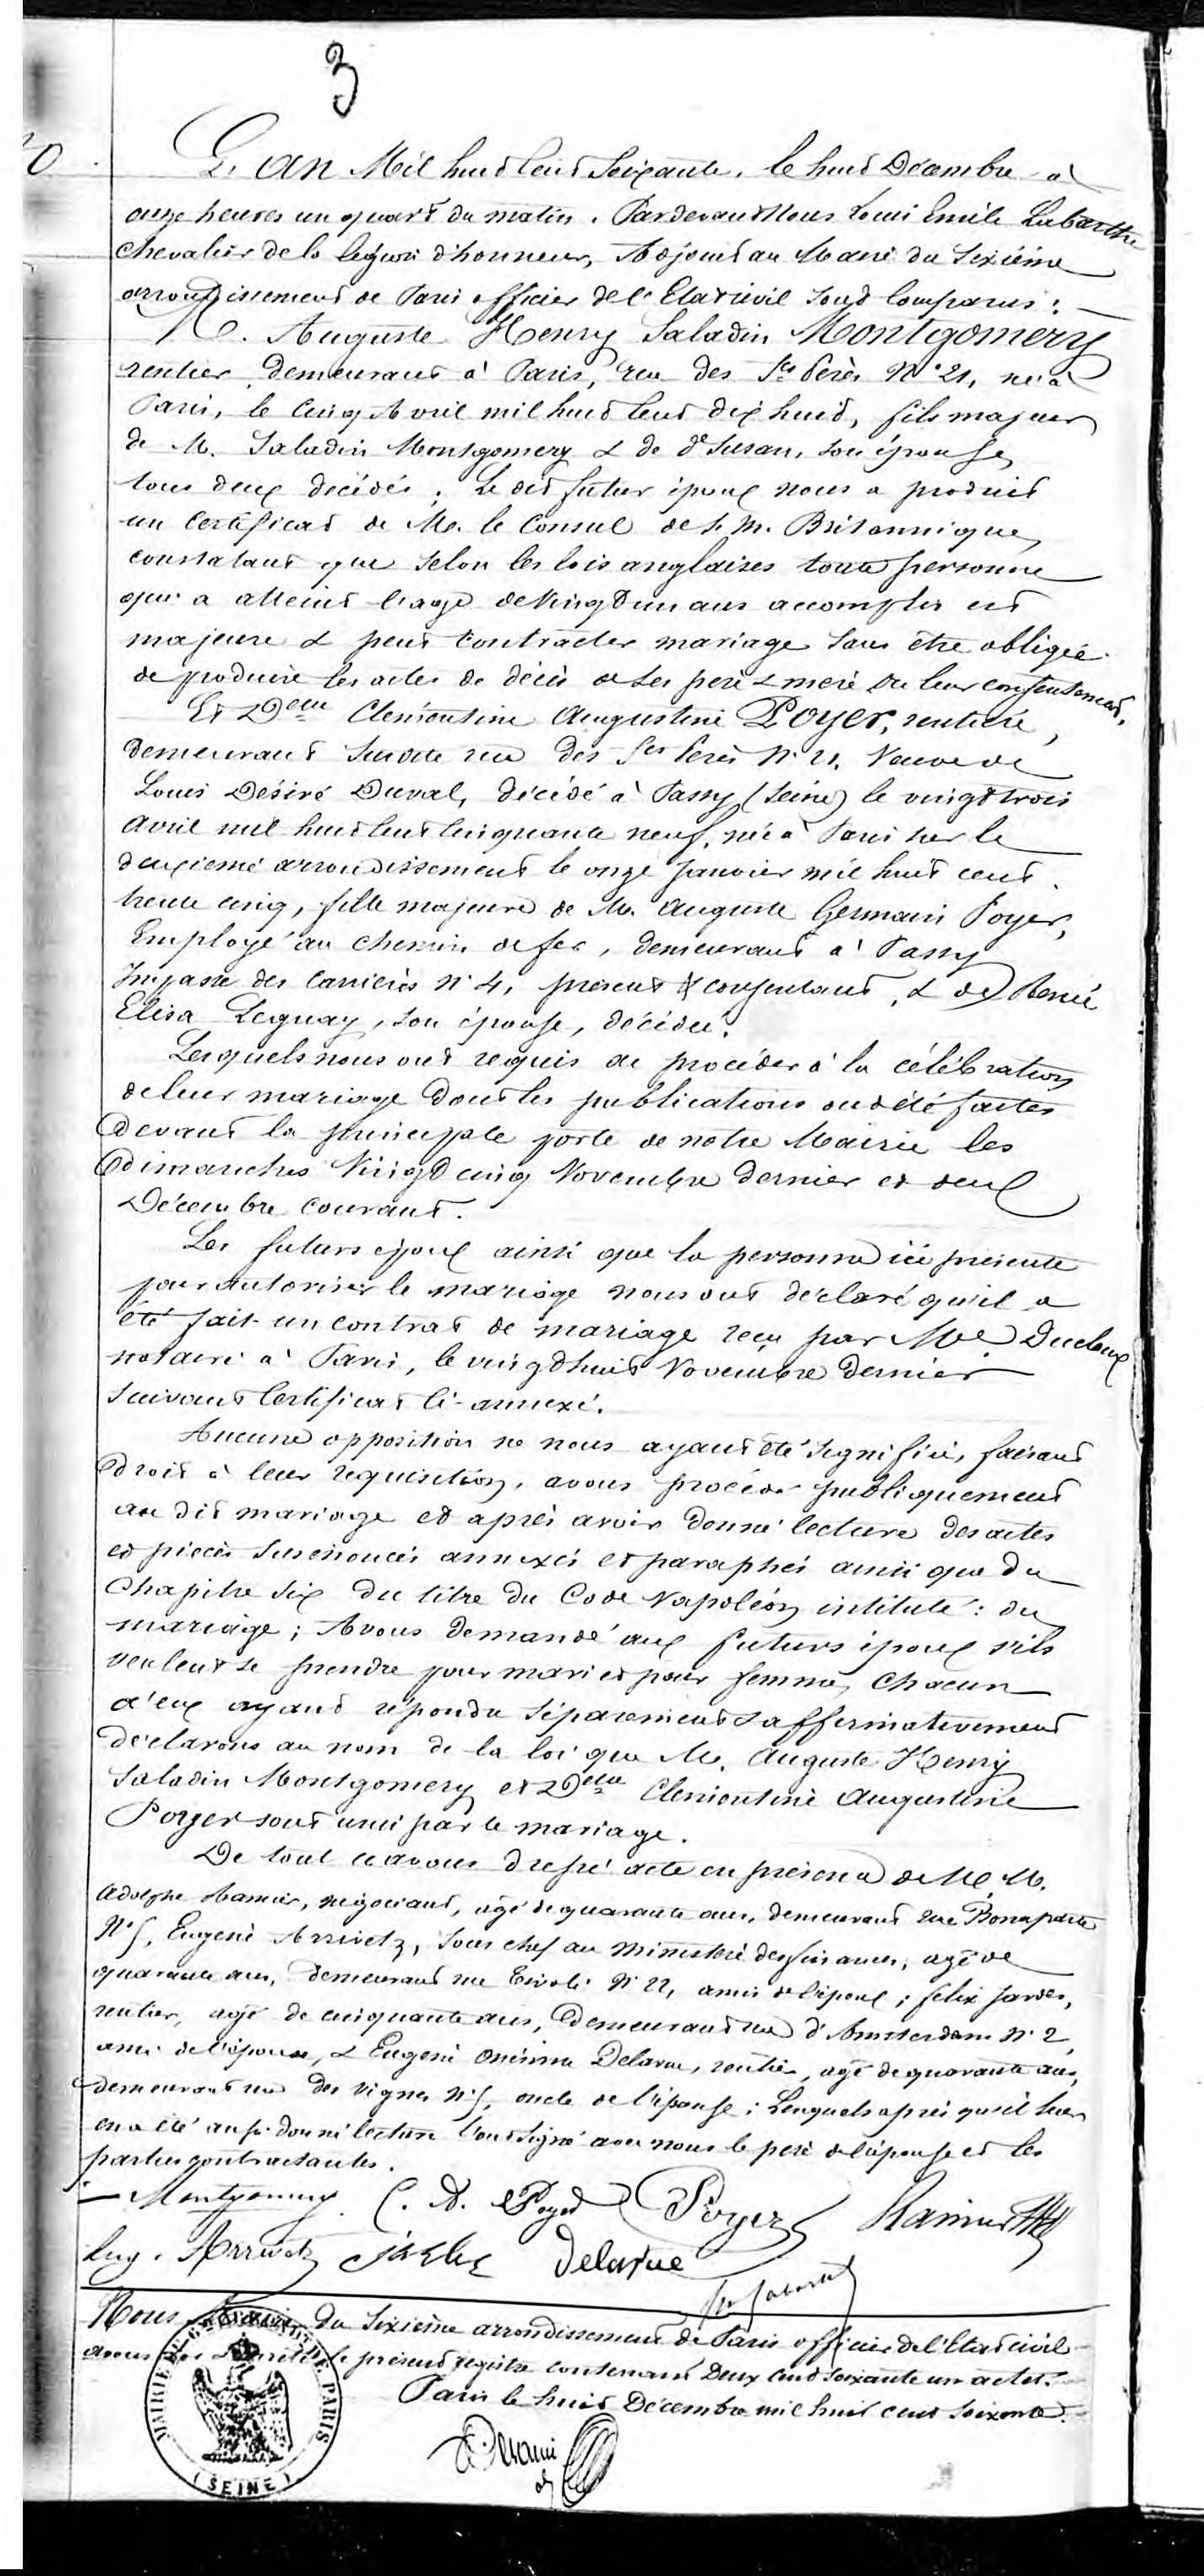 3
L'an Mil huit Cent Soixante, le huit Décembre à
onze heures un quart du matin. Pardevant Nous Louis Emile Labarthe
Chevalier de la légion d'honneur, Adjoint au Maire du Sixième
arrondissement de Paris officier de l'Etat civil Sont Comparus :
M. Auguste Henry Saladin Montgomery
rentier demeurant à Paris, rue des Sts Pères No 21, né à
Paris, le Cinq Avril mil huit Cent dix huit, fils majeur
de M. Saladin Montgomery & de de Susan, son épouse
tous deux décédés ; Le dit futur époux nous a produit
un Certificat de M. le Consul de S. M. Britannique,
constatant que Selon les lois anglaises toute personne
qui a atteint l'age de Vingt un ans accomplis est
majeure & peut Contracter mariage Sans être obligée
de produire les actes de décès de Ses père & mère ou leur consentement,
Et Delle Clémentine Augustine Poyer, rentière,
demeurant Susdite rue des Sts Pères No 21, Veuve de
Louis Désiré Duval, décédé à Passy (Seine) le vingt trois
Avril mil huit Cent Cinquante neuf, née à Paris sur le
deuxième arrondissement le onze Janvier mil huit cent
trente cinq, fille majeure de M. Auguste Germain Poyer,
Employé au chemin de fer, demeurant à Passy
Impasse des Carrières No 4, présent & consentant, & de Renée
Elisa Leguay, son épouse, décédée.
Lesquels nous ont requis de procéder à la célébration
de leur mariage dont les publications ont été faites
devant la principale porte de notre Mairie les
dimanches Vingt cinq Novembre dernier et deux
Décembre Courant.
Les futurs époux ainsi que la personne ici présente
pour autoriser le mariage nous ont déclaré qu'il a
été fait un contrat de mariage reçu par Me Ducloux
notaire à Paris, le vingt huit Novembre dernier
Suivant Certificat Ci-annexé.
Aucune opposition ne nous ayant été Signifiée, faisant
droit à leur requisition, avons procédé publiquement
au dit mariage et après avoir donné lecture des actes
et pièces Susénoncés annexés et paraphés ainsi que du
Chapitre Six du titre du Code Napoléon intitulé : du
mariage ; Avons demandé aux futurs époux s'ils
veulent Se prendre pour mari et pour femme, Chacun
d'eux ayant répondu Séparément & affirmativement
déclarons au nom de la loi que M. Auguste Henry
Saladin Montgomery et Delle Clémentine Augustine
Poyer sont unis par le mariage.
De tout ce avons dressé acte en présence de M. M.
Adolphe Ramier, négociant, agé de quarante ans, demeurant rue Bonaparte
No 5, Eugène Arrivetz, Sous chef au ministère des finances, agé de
quarante ans, demeurant rue Tivoli No 22, amis de l'époux ; félix
rentier, agé de cinquante ans, demeurant rue d'Amsterdam No 2,
ami de l'épouse, & Eugène Onésime Delarue, rentier, agé de quarante ans,
demeurant rue des Vignes No 5, oncle de l'épouse ; Lesquels après qu'il leur
en a été aussi donné lecture l'ont Signé avec nous le père de l'épouse et les
parties contractantes.
Montgomery C. A. Poyer Poyer Ramier
Eug. Arrivetz Delarue
Nous du Sixième arrondissement de Paris officier de l'Etat civil
avons le présent registre contenant Deux Cent Soixante un actes.
Paris le huit Décembre mil huit cent Soixante.
MAIRIE DU 6E ARRONDT DE PARIS
(SEINE)